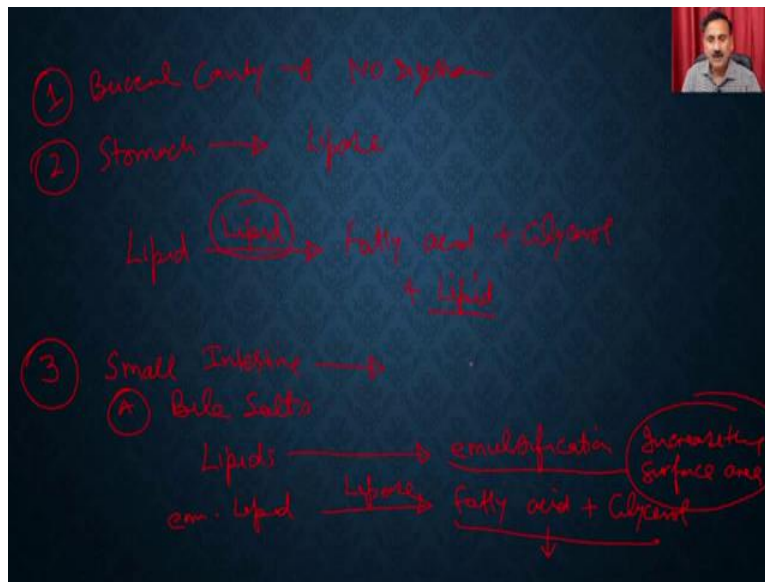 1 Buccal Cavity → NO Digestion
2 Stomach → Lipase
Lipid Lipid → Fatty acid + Glycerol
+ Lipid
3 Small Intestine →
A Bile Salts
Lipids → emulsification Increase the
surface area
em. Lipid Lipase → Fatty acid + Glycerol